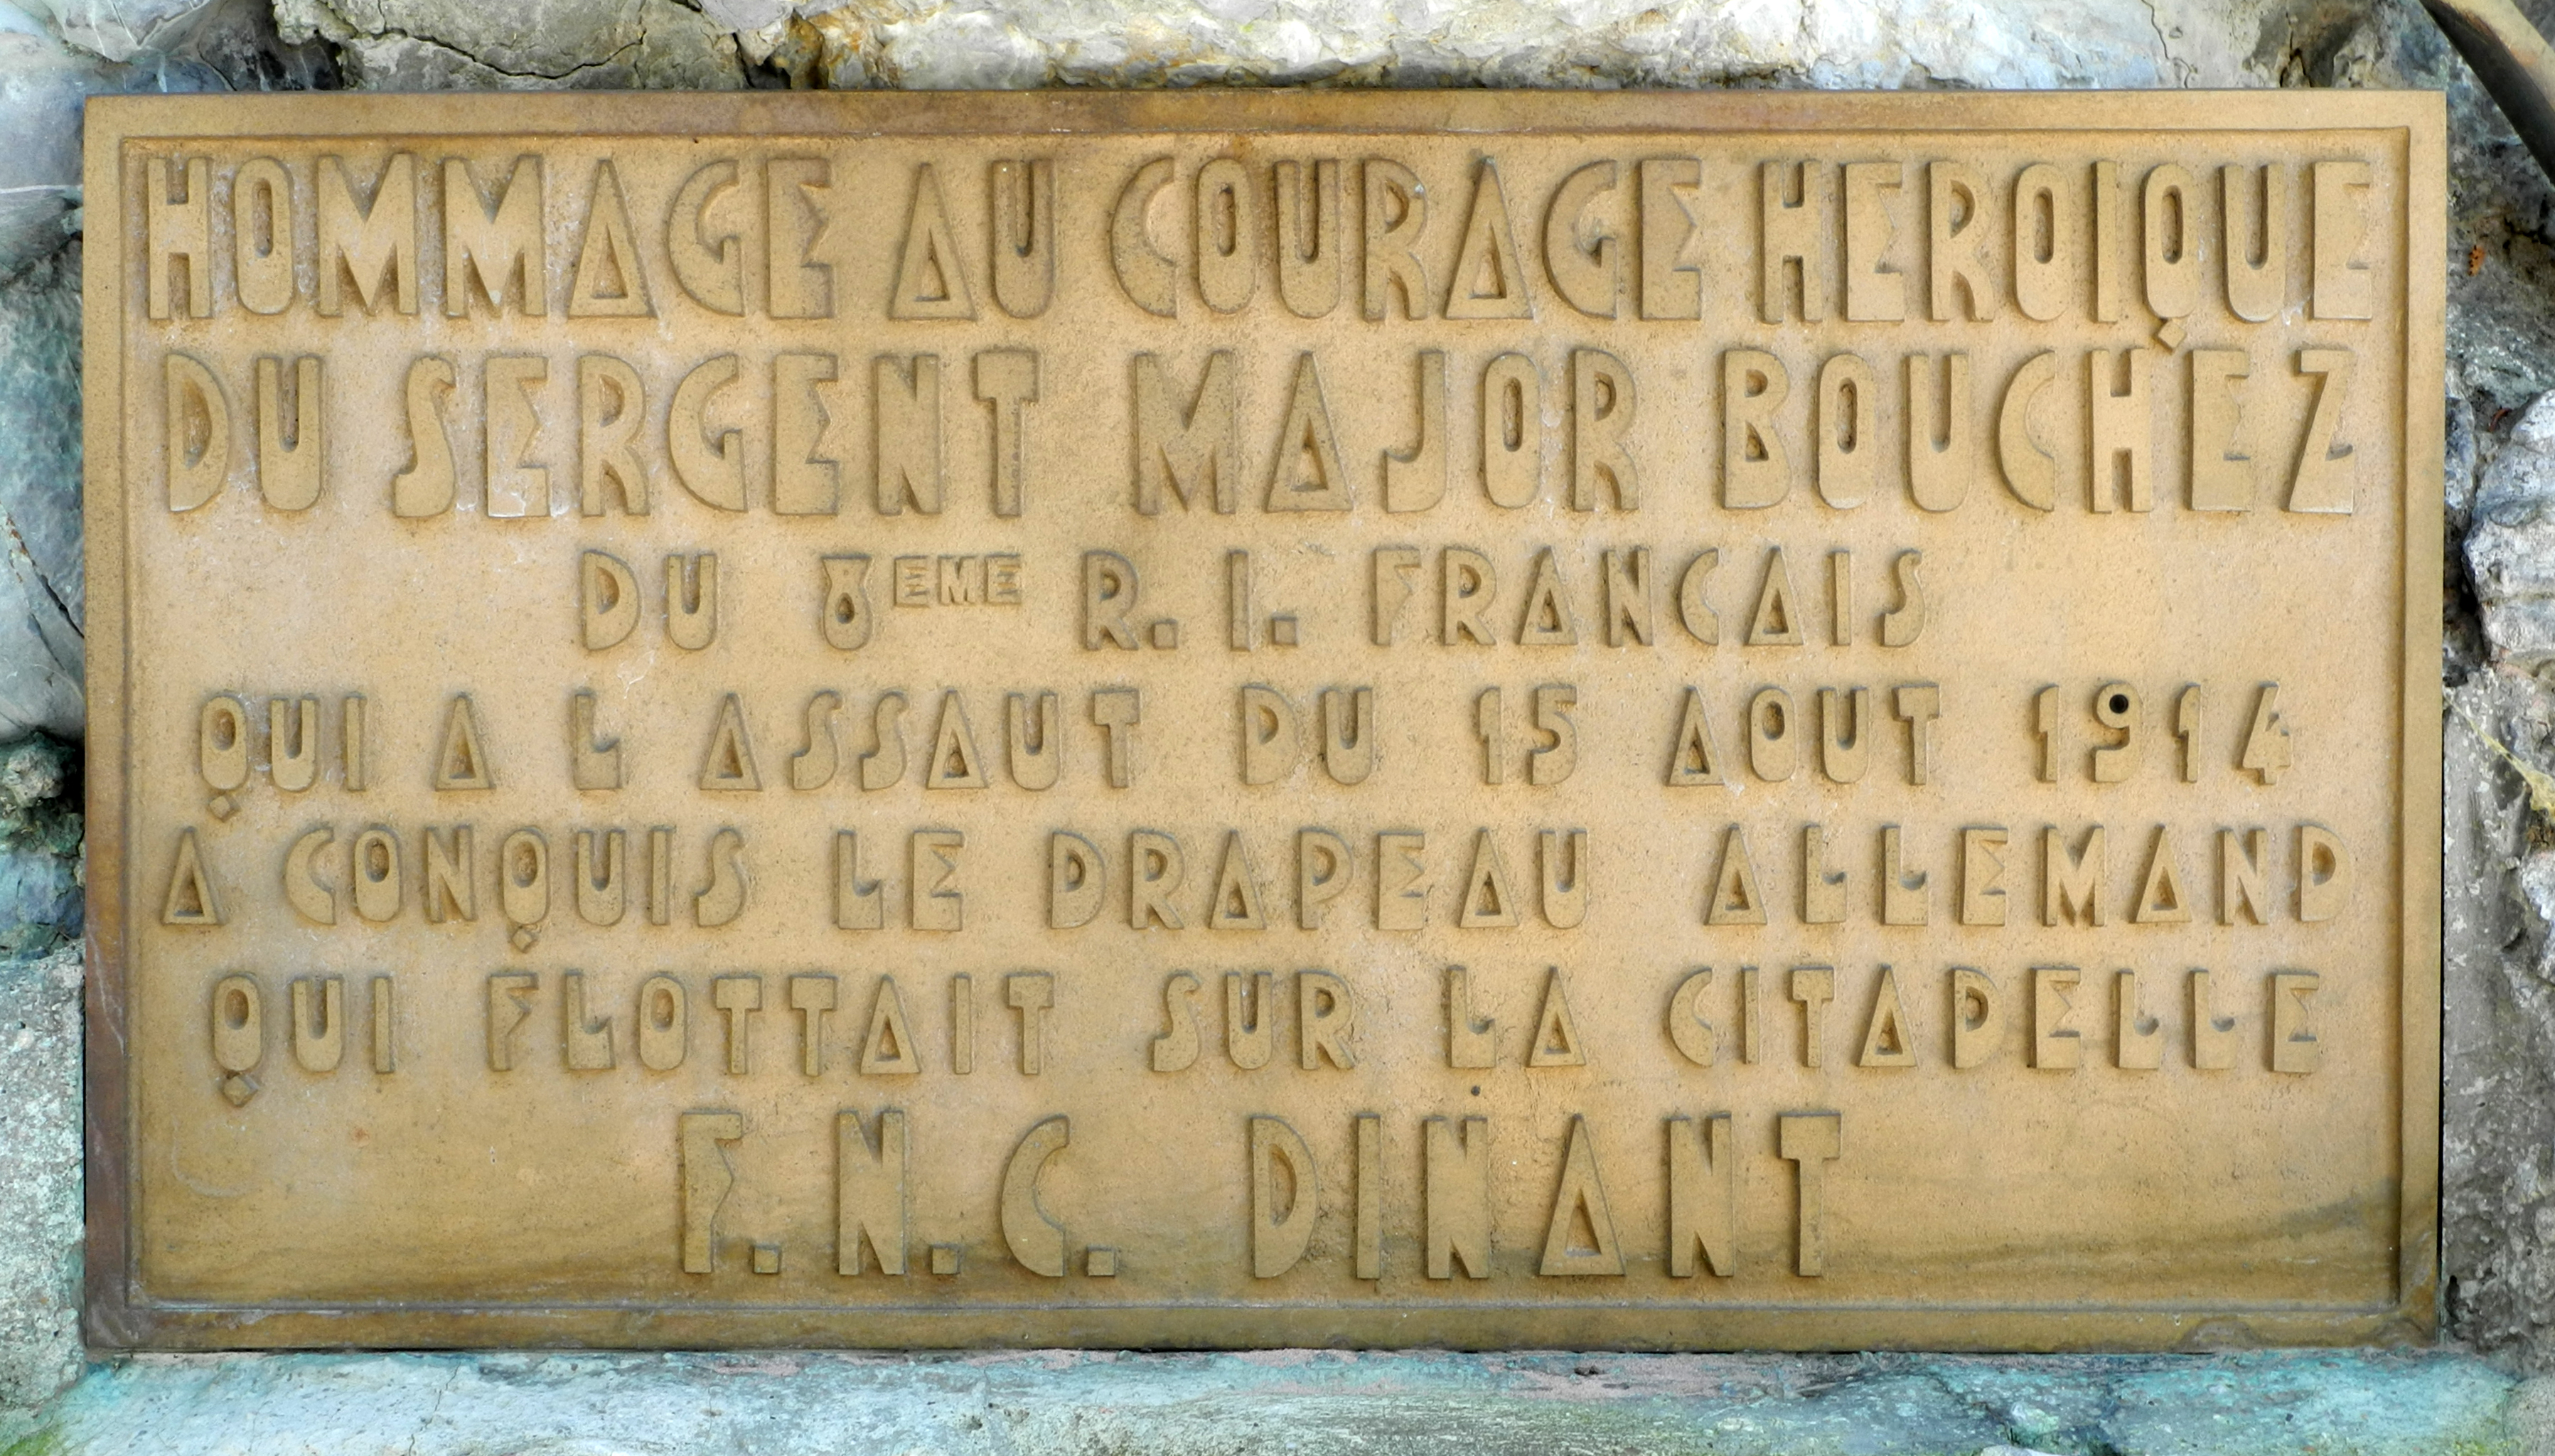 HOMMAGE AU COURAGE HEROIQUE
DU SERGENT MAJOR BOUCHEZ
DU 8EME R. I. FRANCAIS
QUI A L ASSAUT DU 15 AOUT 1914
A CONQUIS LE DRAPEAU ALLEMAND
QUI FLOTTAIT SUR LA CITADELLE
F.N.C. DINANT